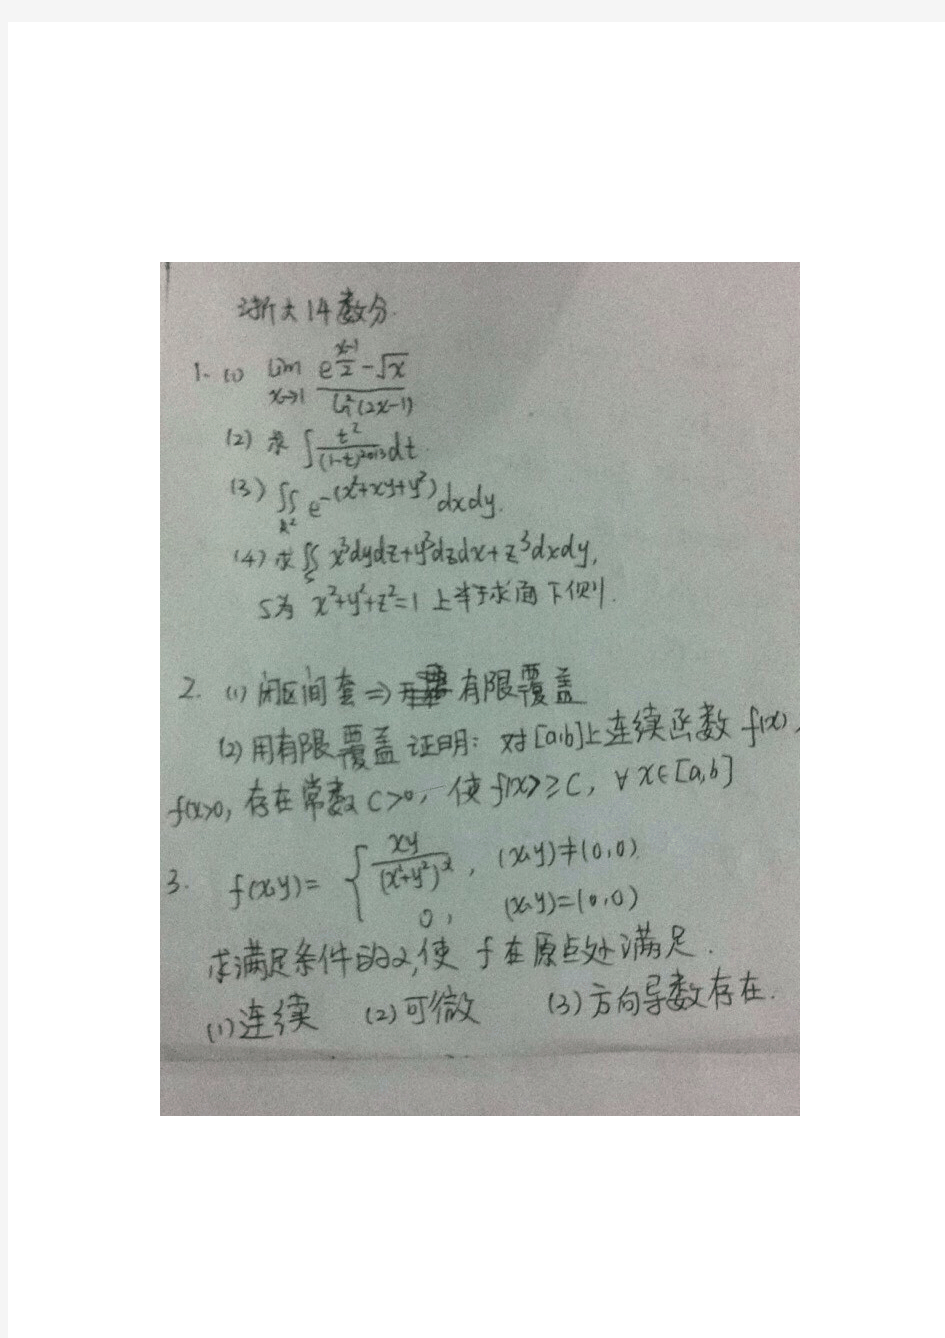 浙大14数分.
1. (1) lim_{x→1} (e^{(x-1)/2} - √x) / ln²(2x-1)
(2) 求 ∫ t²/(1-t)^{2013} dt.
(3) ∬_{R²} e^{-(x²+xy+y²)} dxdy.
(4) 求 ∬_S x³dydz+y³dzdx+z³dxdy,
S为 x²+y²+z²=1 上半球面下侧.
2. (1) 闭区间套 ⇒ 有限覆盖
(2) 用有限覆盖证明: 对[a,b]上连续函数 f(x),
f(x)>0, 存在常数 C>0, 使 f(x)≥C, ∀x∈[a,b]
3. f(x,y)= { xy/(x²+y²)^α, (x,y)≠(0,0)
0, (x,y)=(0,0)
求满足条件的α, 使 f 在原点处满足.
(1)连续 (2)可微 (3)方向导数存在.